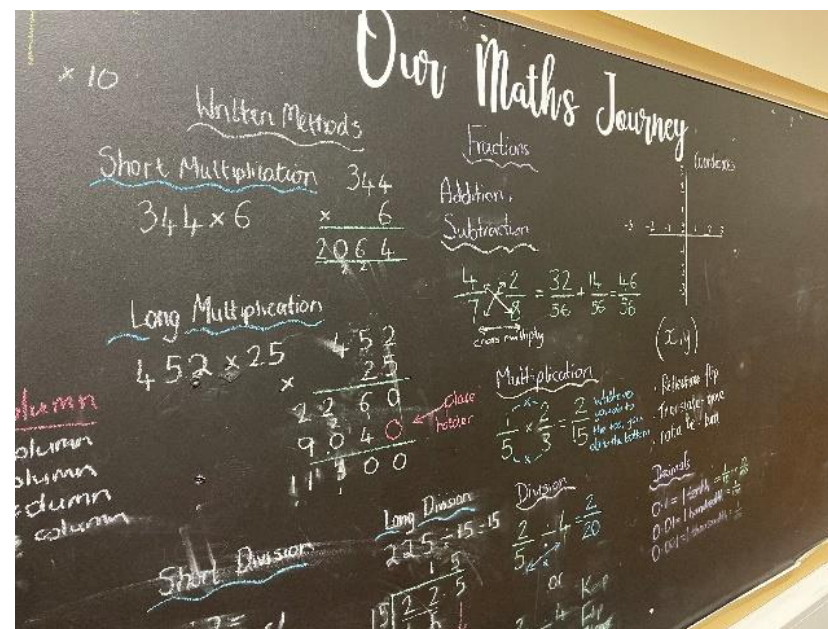 Our Maths Journey
× 10
Written Methods
Short Multiplication
344 × 6
344
× 6
2064
2 2
Long Multiplication
452 × 25
452
× 25
2260
9040
11300
place
holder
column
column
column
column
column
Short Division
Long Division
225 ÷ 15 = 15
1 5
15 2 2 5
Fractions
Addition,
Subtraction
4/7 2/8 = 32/56 + 14/56 = 46/56
cross multiply
Multiplication
1/5 × 2/3 = 2/15
whatever
you do to
the top, you
do to the bottom
Division
2/5 ÷ 4/1 = 2/20
or
Keep
Flip
Coordinates
-3 -2 -1 1 2 3
(x,y)
. Reflection flip
. translate move
. rotate turn
Decimals
0.1 = 1 tenth
0.01 = 1 hundredth
0.001 = 1 thousandth